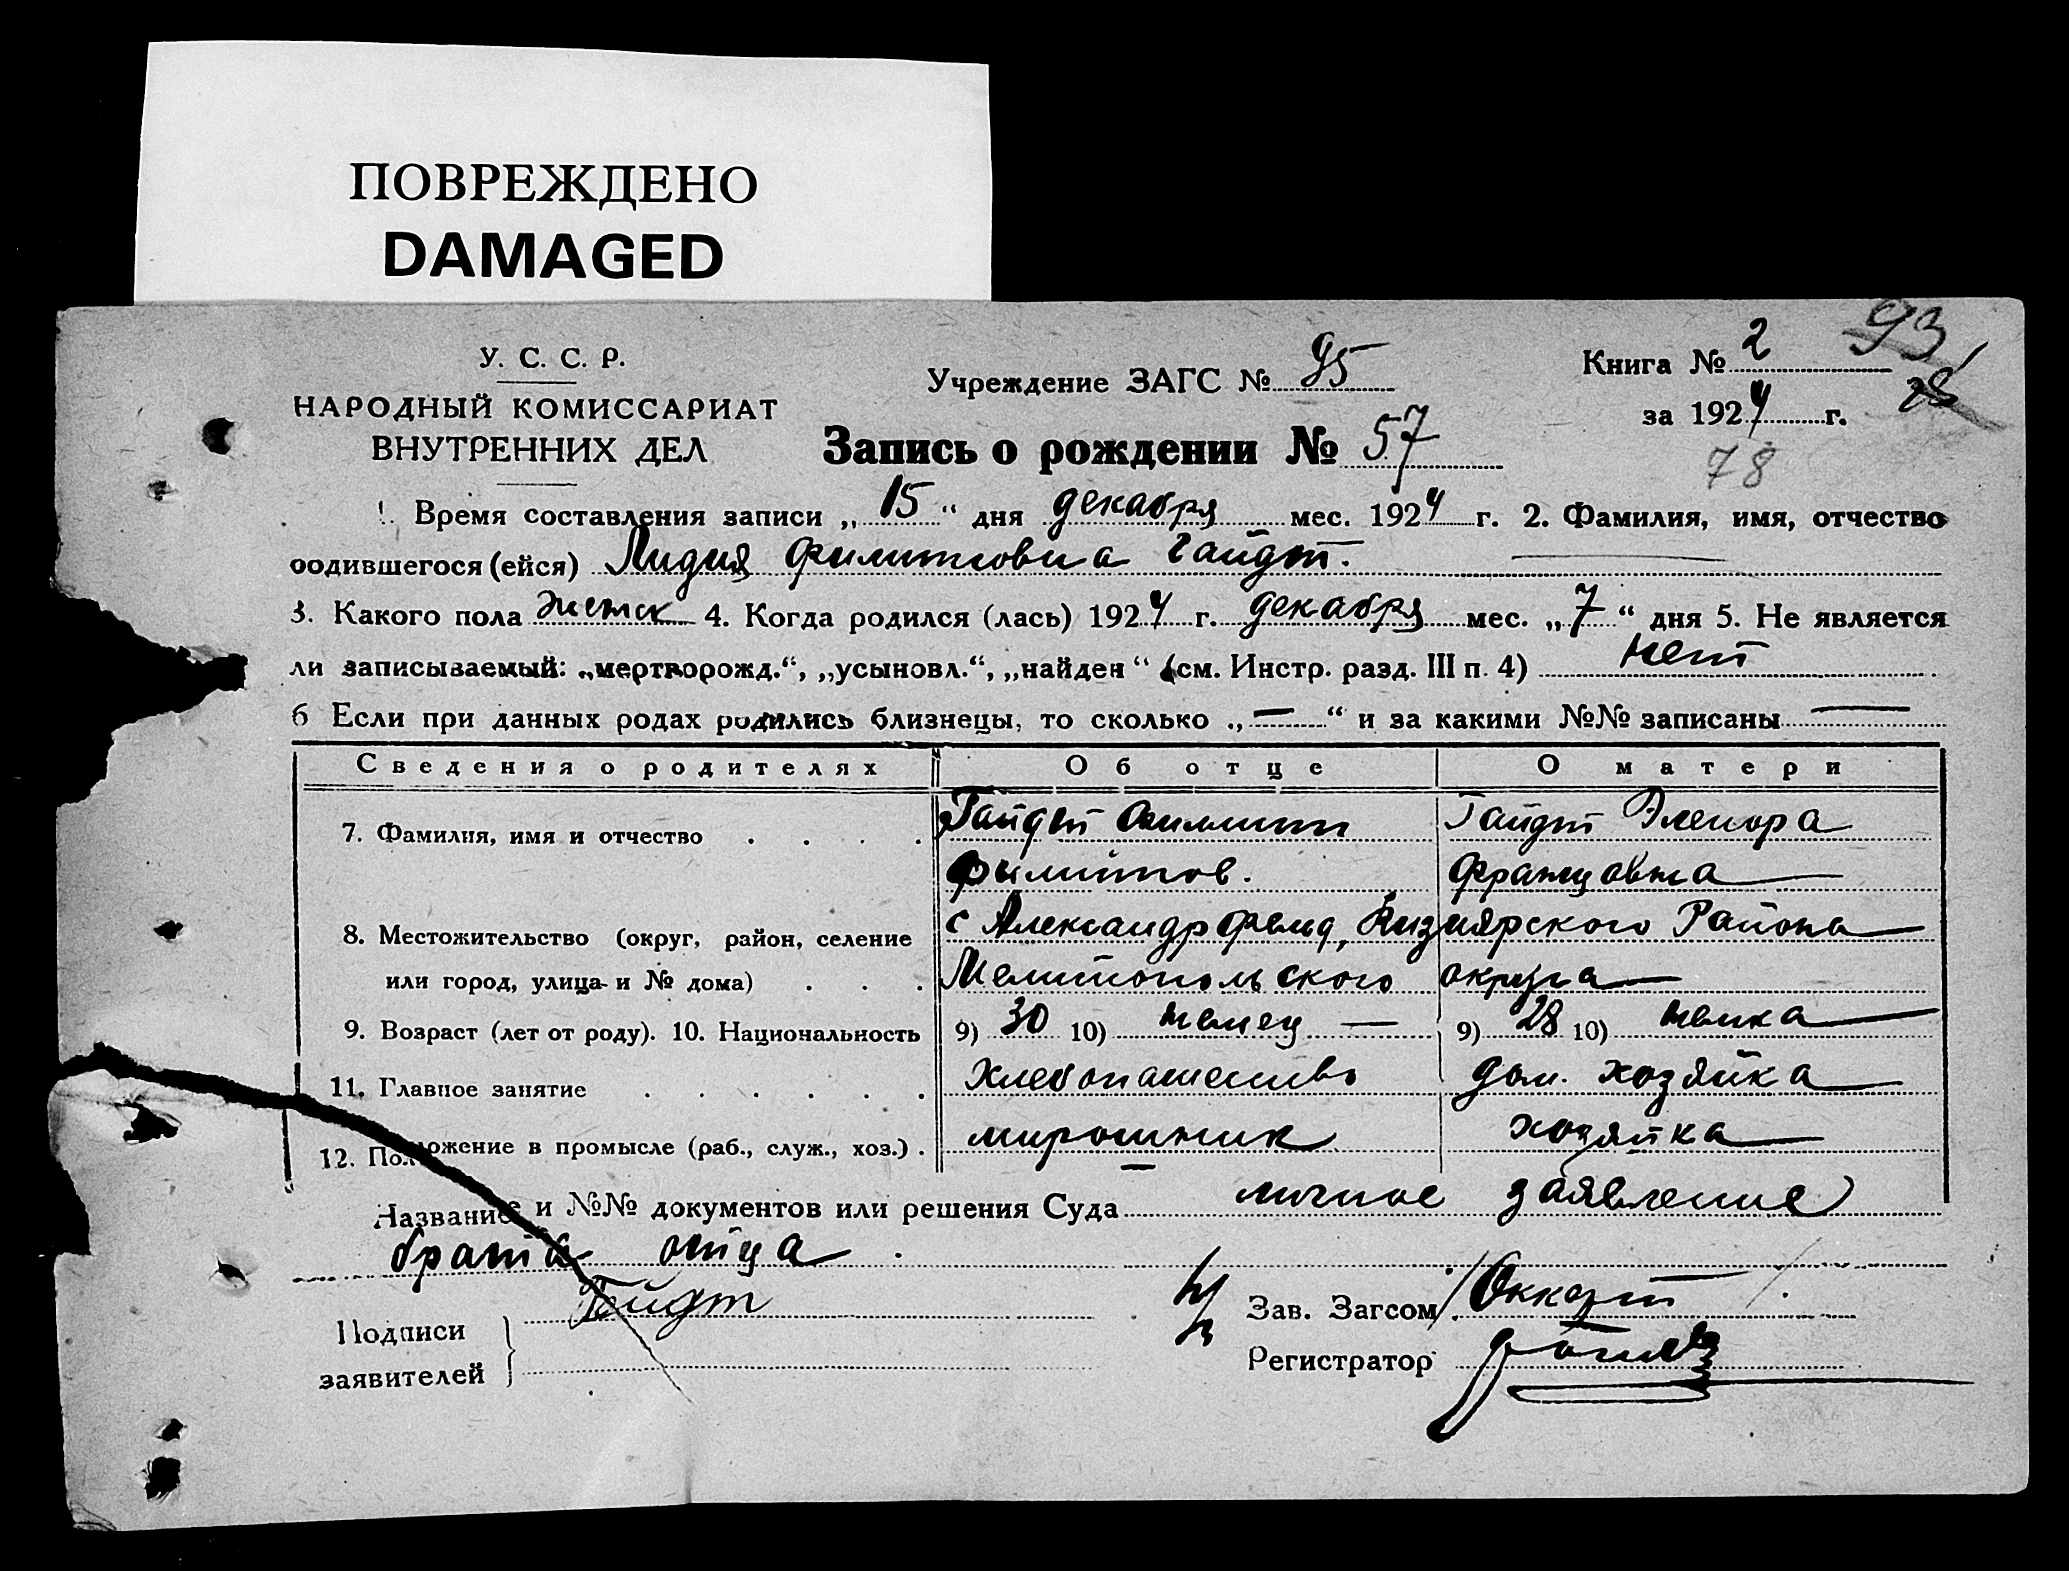 ПОВРЕЖДЕНО
DAMAGED
У. С. С. Р.
НАРОДНЫЙ КОМИССАРИАТ
ВНУТРЕННИХ ДЕЛ
Учреждение ЗАГС № 95
Книга № 2
93
28
за 1924 г.
78
Запись о рождении № 57
1. Время составления записи „15“ дня декабря мес. 1924 г. 2. Фамилия, имя, отчество
родившегося (ейся) Лидия Филиповна Гайдт.
3. Какого пола женск 4. Когда родился (лась) 1924 г. декабря мес. „7“ дня 5. Не является
ли записываемый: „мертворожд.“, „усыновл.“, „найден“ (см. Инстр. разд. III п. 4) нет
6 Если при данных родах родились близнецы, то сколько „—“ и за какими №№ записаны —
Сведения о родителях Об отце О матери
7. Фамилия, имя и отчество . . . . Гайдт Филипп Гайдт Эленора
Филипов. Францовна
8. Местожительство (округ, район, селение с Александрфельд, Кизиярского Района
или город, улица и № дома) . . . Мелитопольского округа
9. Возраст (лет от роду). 10. Национальность 9) 30 10) немец — 9) 28 10) немка
11. Главное занятие . . . . . . хлебопашество дом. хозяйка
12. Положение в промысле (раб., служ., хоз.) . мирошник хозяйка
Название и №№ документов или решения Суда личное заявление
брата отца .
Подписи
заявителей } Гайдт
Зав. Загсом /Оккерт/.
Регистратор